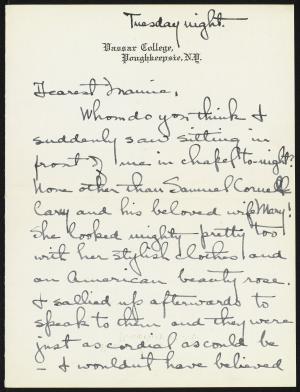 Tuesday night.
Vassar College,
Poughkeepsie, N.Y.
Dearest Mamma,
Whom do you think I
suddenly saw sitting in
front of me in chapel to-night?
None other than Samuel Cornell
and his beloved wife Mary!
She looked mighty pretty too
with her stylish clothes and
an American beauty rose.
I sallied up afterwards to
speak to them and they were
just as cordial as could be
- I wouldn't have believed